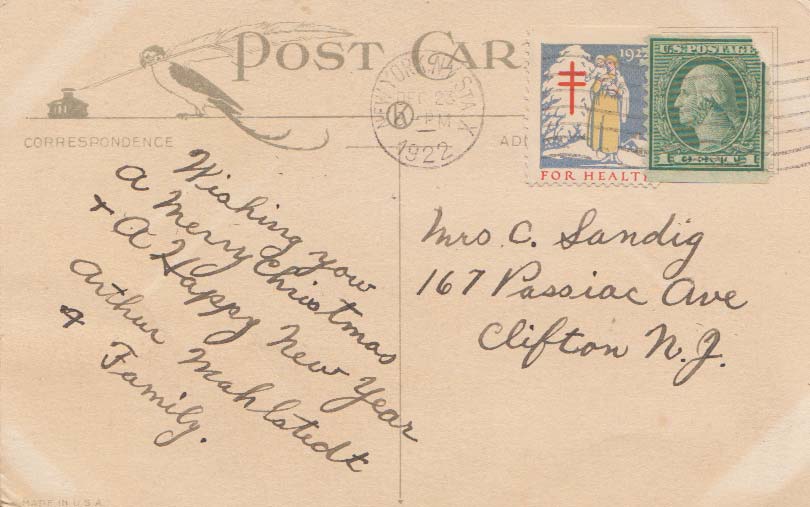 POST CAR
NEW YORK, N.Y. STA. X
DEC 23
K
PM
1922
192
FOR HEALTH
U.S. POSTAGE
1 1
CORRESPONDENCE
Wishing you
a merry Christmas
+ A Happy New Year
Arthur Mahlstedt
+ Family.
Mrs C. Sandig
167 Passiac Ave
Clifton N.J.
MADE IN U.S.A.